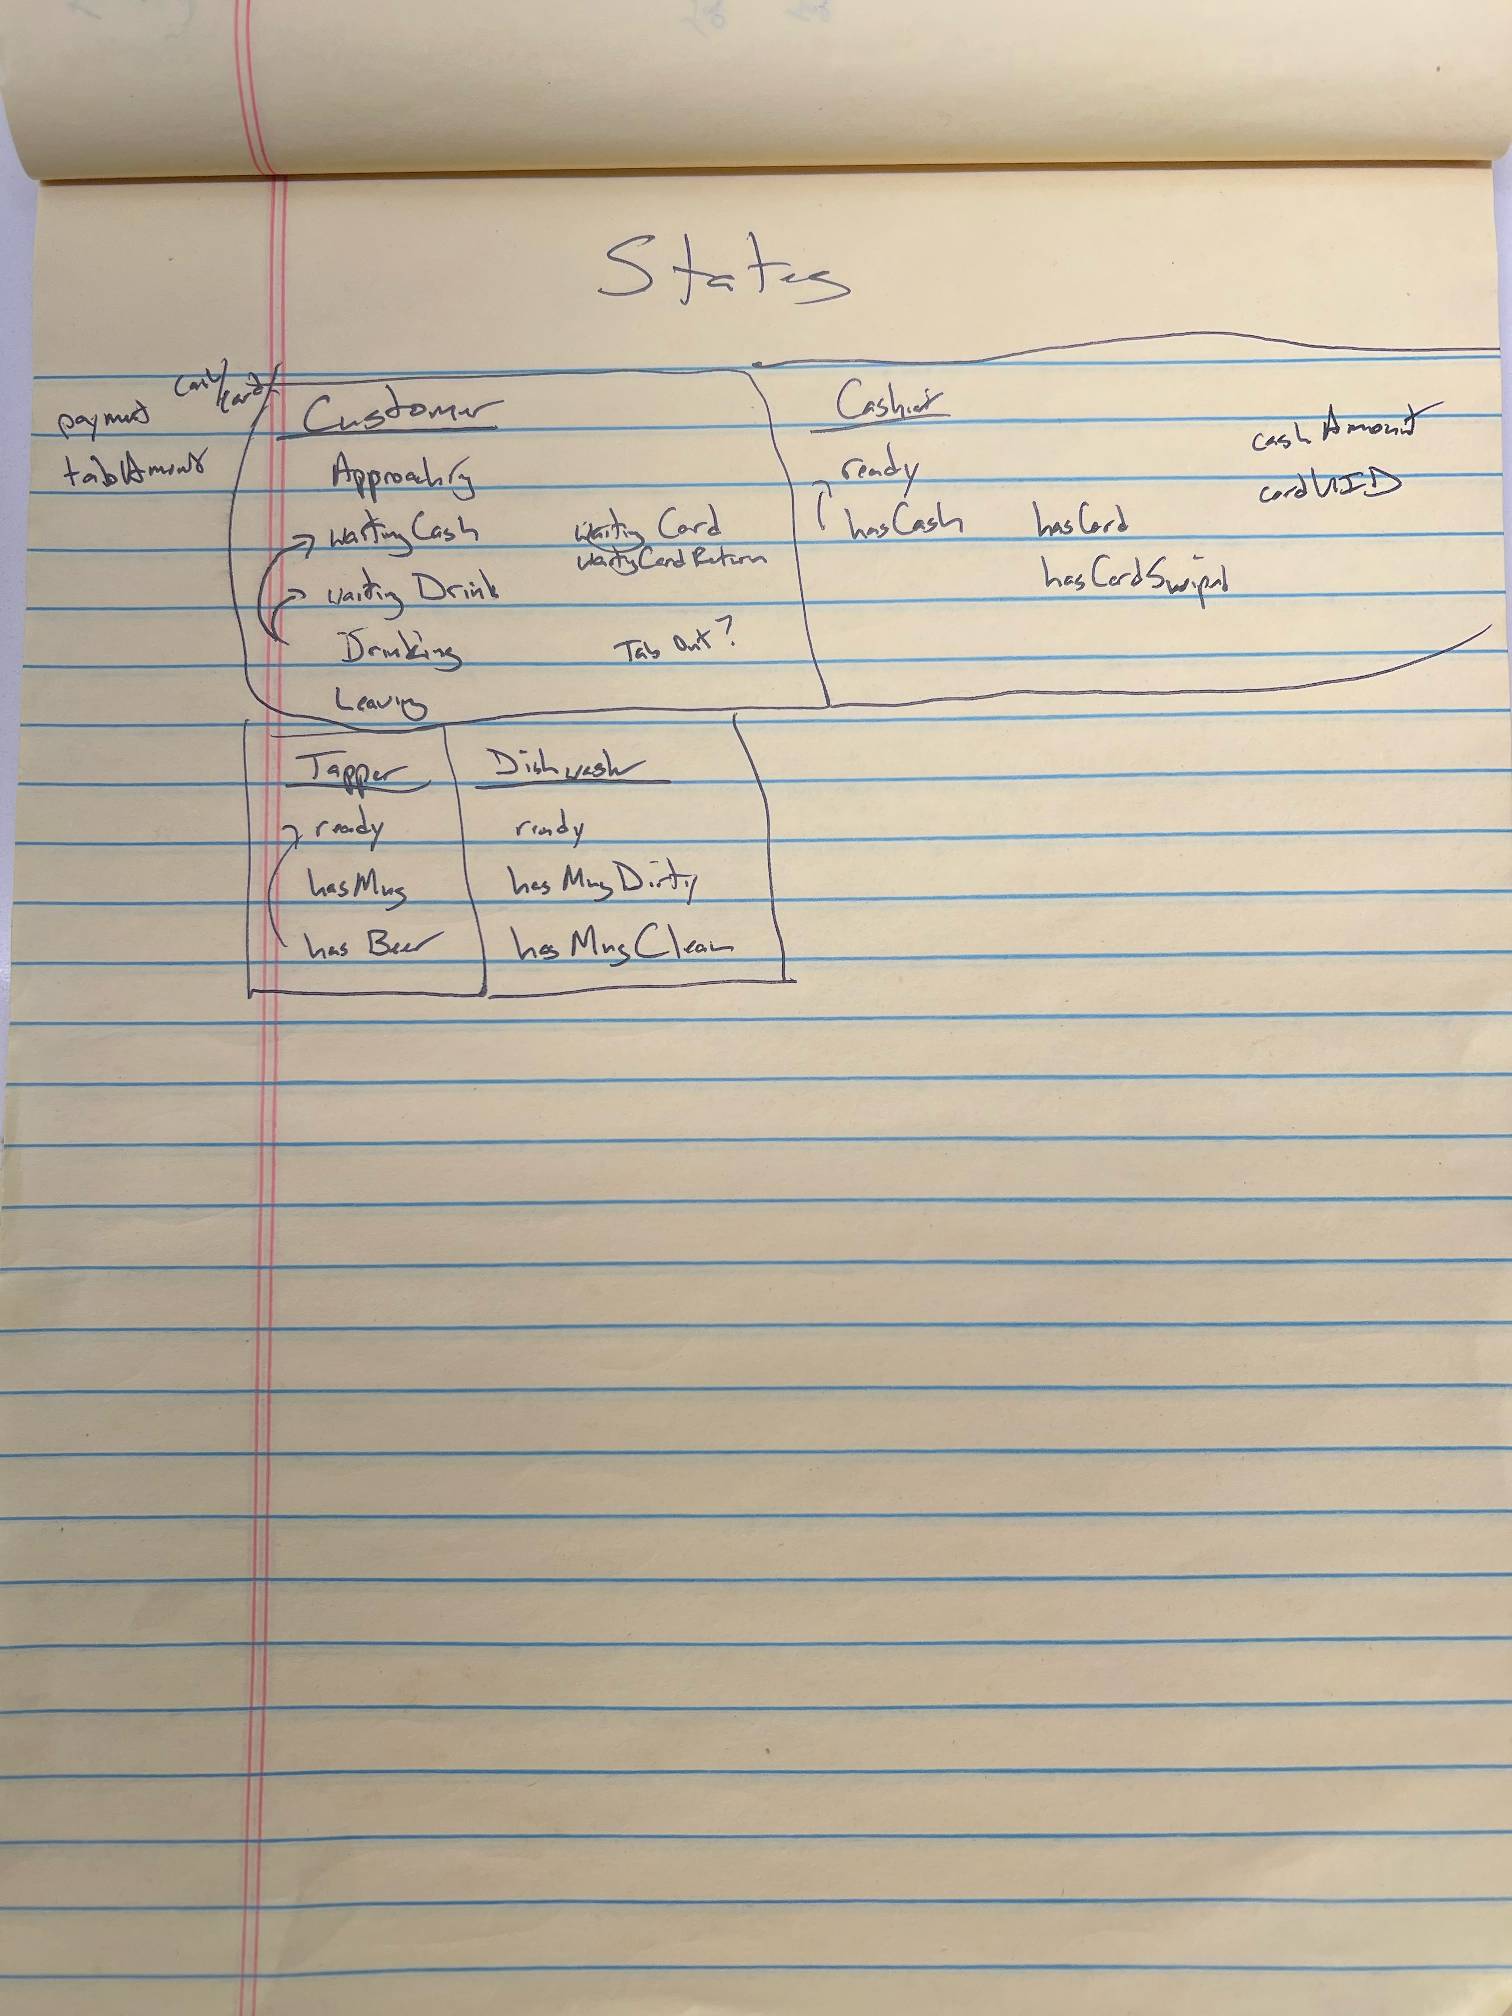 States
cash/card
payment
tabAmount
Customer
Approaching
waitingCash
waiting Card
waitingCardReturn
waiting Drink
Drinking
Tab Out?
Leaving
Cashier
ready
hasCash
hasCard
hasCardSwiped
cashAmount
cardUID
Tapper
ready
hasMug
has Beer
Dishwasher
ready
has MugDirty
has MugClean